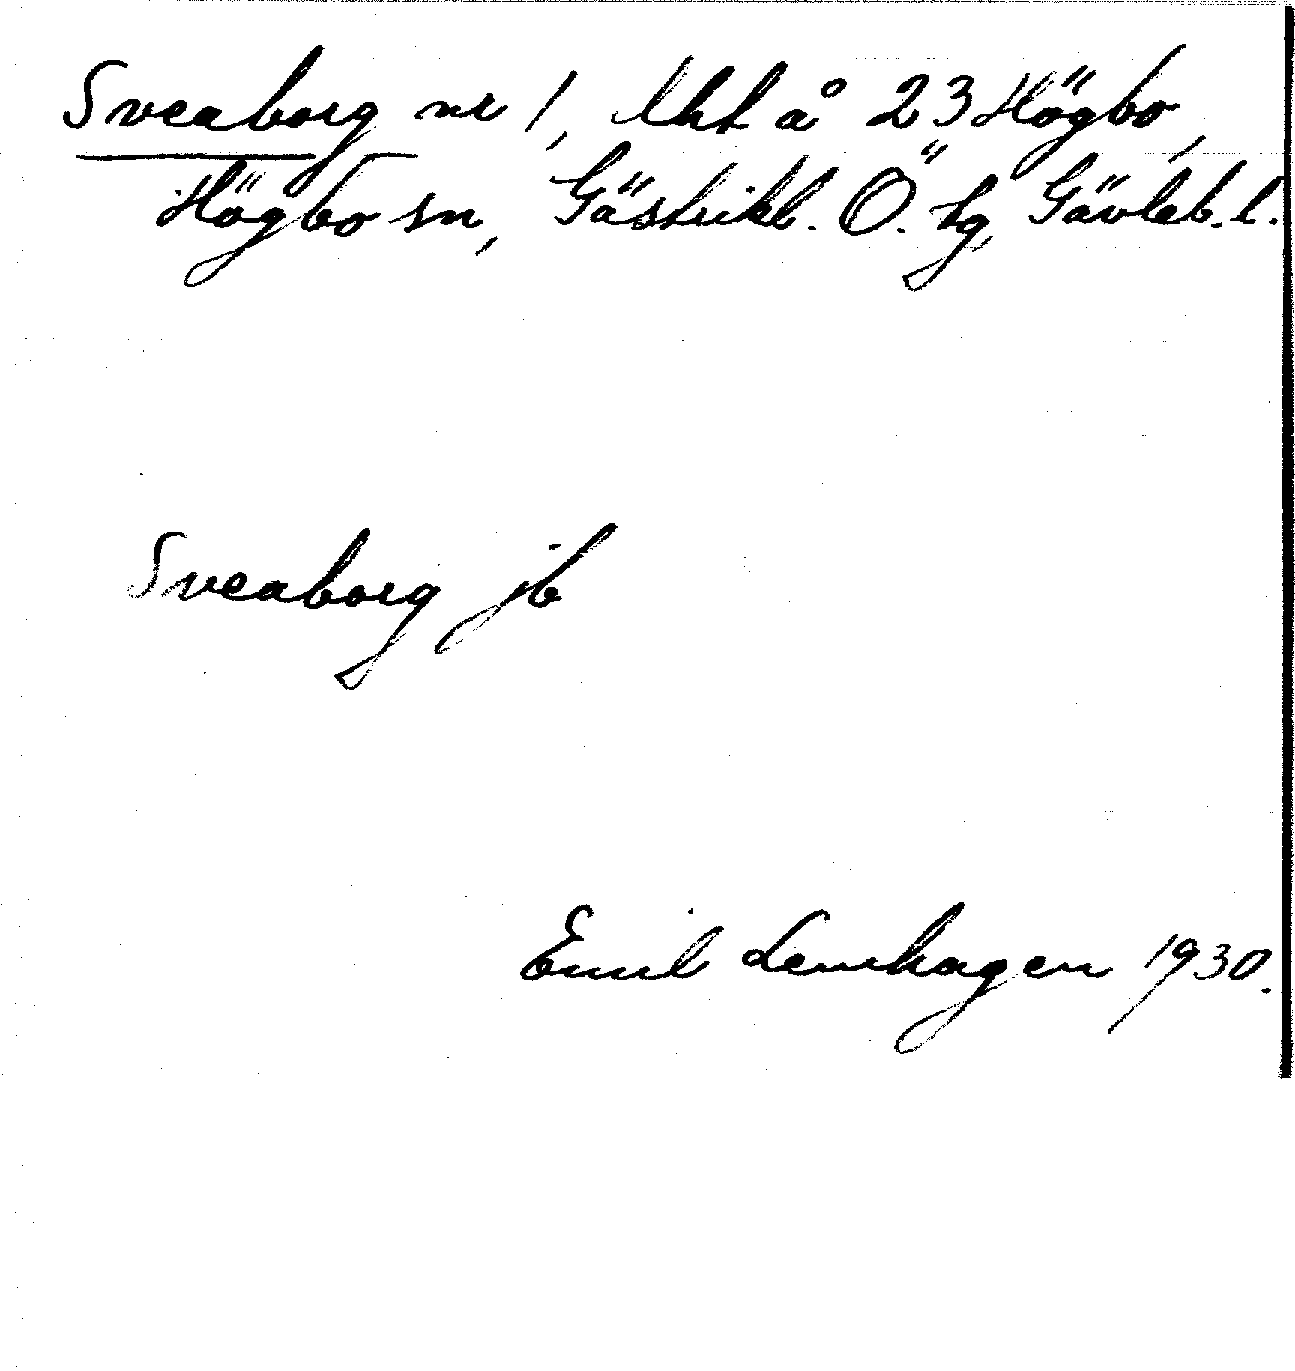 Sveaborg nr 1, lht å 23 Högbo,
Högbo sn, Gästrikl. Ö. tg, Gävleb. l.
Sveaborg jb
Emil Lenhagen 1930.